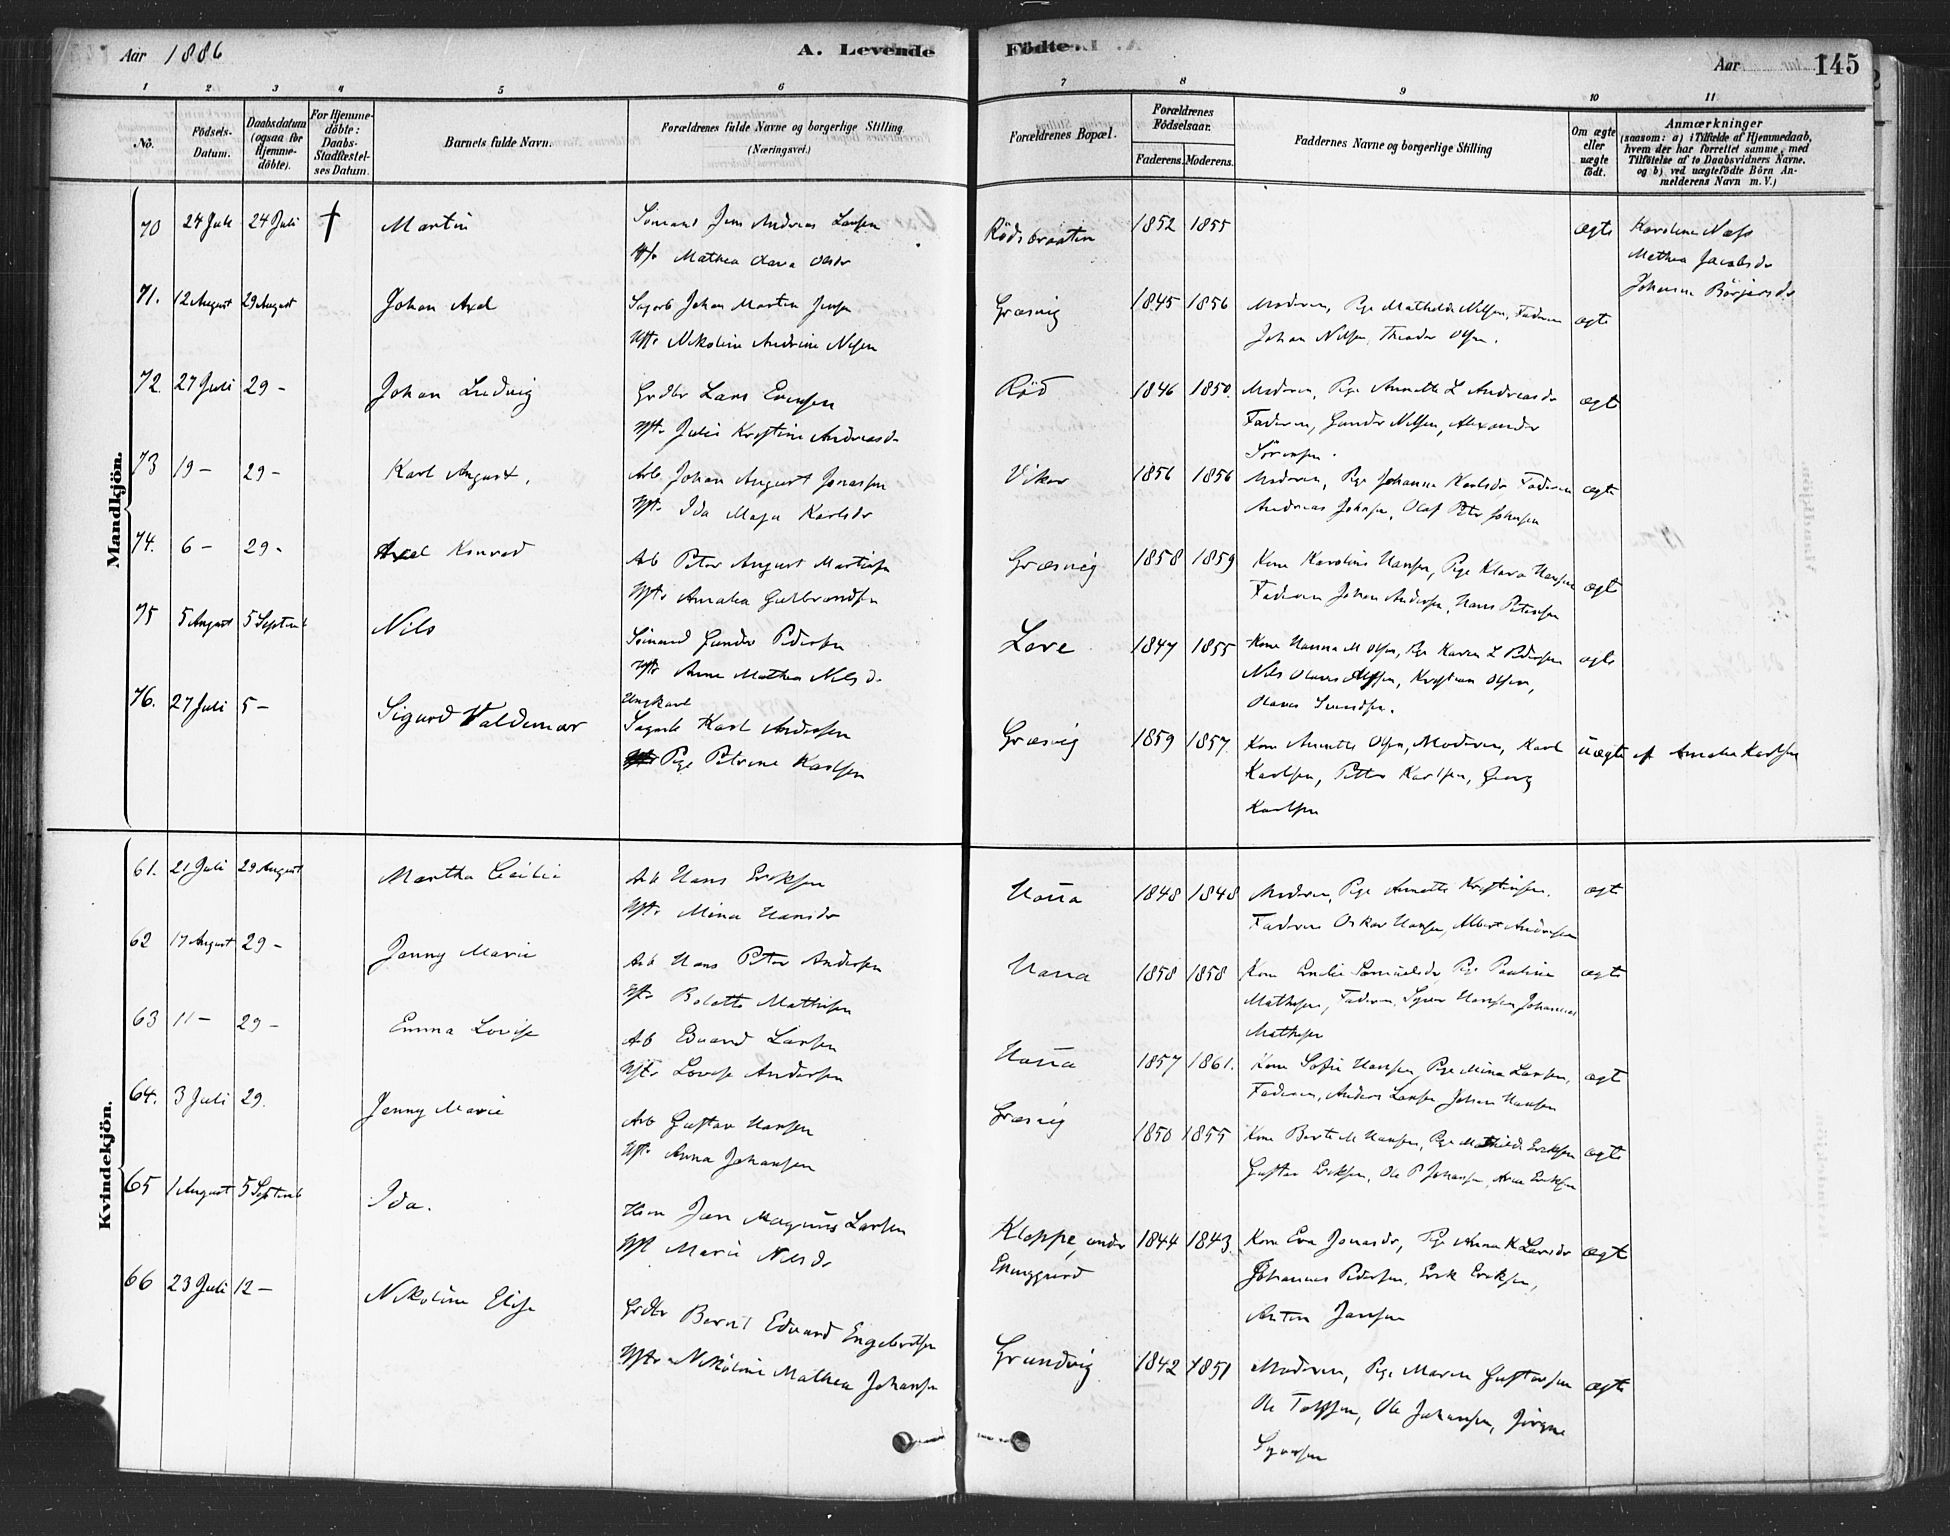 Aar 1886
A. Levende
Födte.
Aar
145
1 2 3 4 5 6 7 8 9 10 11
No.
Födsels-Datum.
Daabsdatum (ogsaa for Hjemme-döbte).
For Hjemme-döbte: Daabs-Stadfæstel-ses Datum.
Barnets fulde Navn.
Forældrenes fulde Navne og borgerlige Stilling (Næringsvei.)
Forældrenes Bopæl.
Forældrenes Födselsaar.
Faderens. Moderens.
Faddernes Navne og borgerlige Stilling
Om ægte eller uægte födt.
Anmærkninger
(saasom: a) i Tilfælde af Hjemmedaab, hvem der har forrettet samme, med Tilföielse af to Daabsvidners Navne. og b) ved uægtefödte Börn An-melderens Navn m. V.)
Mandkjön.
70 24 Juli 24 Juli † Martin
Sömand Jens Andreas Larsen
Hst. Mathea Olava Olsdr
Rödsbraaten 1852 1855 ægte
Karoline Næss
Mathea Jacobsdr
Johanne Börjersdr
71. 12 August 29 August Johan Axel
Sagarb Johan Martin Jensen
Hst. Nikoline Andrine Nilsen
Græsvig 1845 1856
Moderen, Pige Mathilde Nilsen, Faderen
Johan Nilsen, Theodor Olsen.
ægte
72. 27 Juli 29 - Johan Ludvig
Grdbr Lars Evensen
Hst. Julie Kristine Andreasdr
Röd 1846 1850.
Moderen, Pige Annette L Andreasdr
Faderen, Gunder Nilsen, Alexander
Sörensen.
ægt
73 19 - 29 - Karl August.
Arb. Johan August Jonassen
Hst. Ida Maja Karlsdr
Viker 1856 1856
Moderen, Pige Johanna Karlsdr Faderen
Andreas Johnsen, Olaf Petr Johnsen
ægte
74. 6 - 29 - Axel Konrad
Arb Peter August Martinsen
Hst. Amalia Gulbrandsen
Græsvig 1858 1859
Kone Karoline Hansen, Pige Klara Hansen
Faderen Johan Andersen, Hans Petersen
ægt
75 5 August 5 Septemb Nils
Sömand Gunder Pedersen
Hst. Anne Mathea Nilsd.
Lere 1847 1855
Kone Hanna M Olsen, Pige Karen L Pedersen
Nils Olaves Alfsen, Kristian Olsen,
Olaves Svendsen.
ægte
76. 27 Juli 5 - Sigurd Valdemar
Ungkarl
Sagarb Karl Andersen
Pige Petrine Karlsen
Græsvig 1859 1857.
Kone Annette Olsen, Moderen, Karl
Karlsen, Petter Karlsen, Georg
Karlsen
uægte af Amalia Karlsen
Kvindekjön.
61. 21 Juli 29 August Martha Cecilie
Arb Hans Eriksen
Hst. Mina Hansdr
Hauna 1848 1848
Moderen, Pige Annette Kristiansen.
Faderen Oskar Hansen, Albert Andersen
ægt
62 17 August 29 - Jenny Marie
Arb Hans Peter Andersen
Hst. Bolette Mathisen
Hauna 1858 1858
Kone Emilie Samuelsdr, Pige Pauline
Mathisen, Faderen, Syver Hansen, Johannes
Mathisen
ægte
63 11 - 29 - Emma Lovise
Arb Edvard Larsen
Hst. Lovise Andersen
Hauna 1857 1861.
Kone Sofie Hansen, Pige Mina Larsen,
Faderen, Anders Larsen Johan Hansen
ægt
64. 3 Juli 29. Jenny Marie
Arb Gustav Hansen
Hst. Anna Johansen
Græsvig 1850 1855
Kone Berte M Hansen, Pige Mathilde Eriksen
Gustav Eriksen, Ole P Johansen, Eriksen
ægte
65 1 August 5 Septemb Ida.
Jan Magnus Larsen
Hst Marie Nilsdr
Kloppe, under
Elinggaard 1844 1843
Kone Eva Jonasdr, Pige Anna K Larsdr
Johannes Pedersen, Erik Eriksen,
Anton Jansen
ægte
66 23 Juli 12 - Nikoline Elise
Grdbr Bernt Edvard Engebretsen
Hst. Nikoline Mathea Johansen
Grundvig 1842 1851
Moderen, Pige Maren Gustavsen
Ole Tollefsen, Ole Johansen, Jörgine
Syversen
ægte